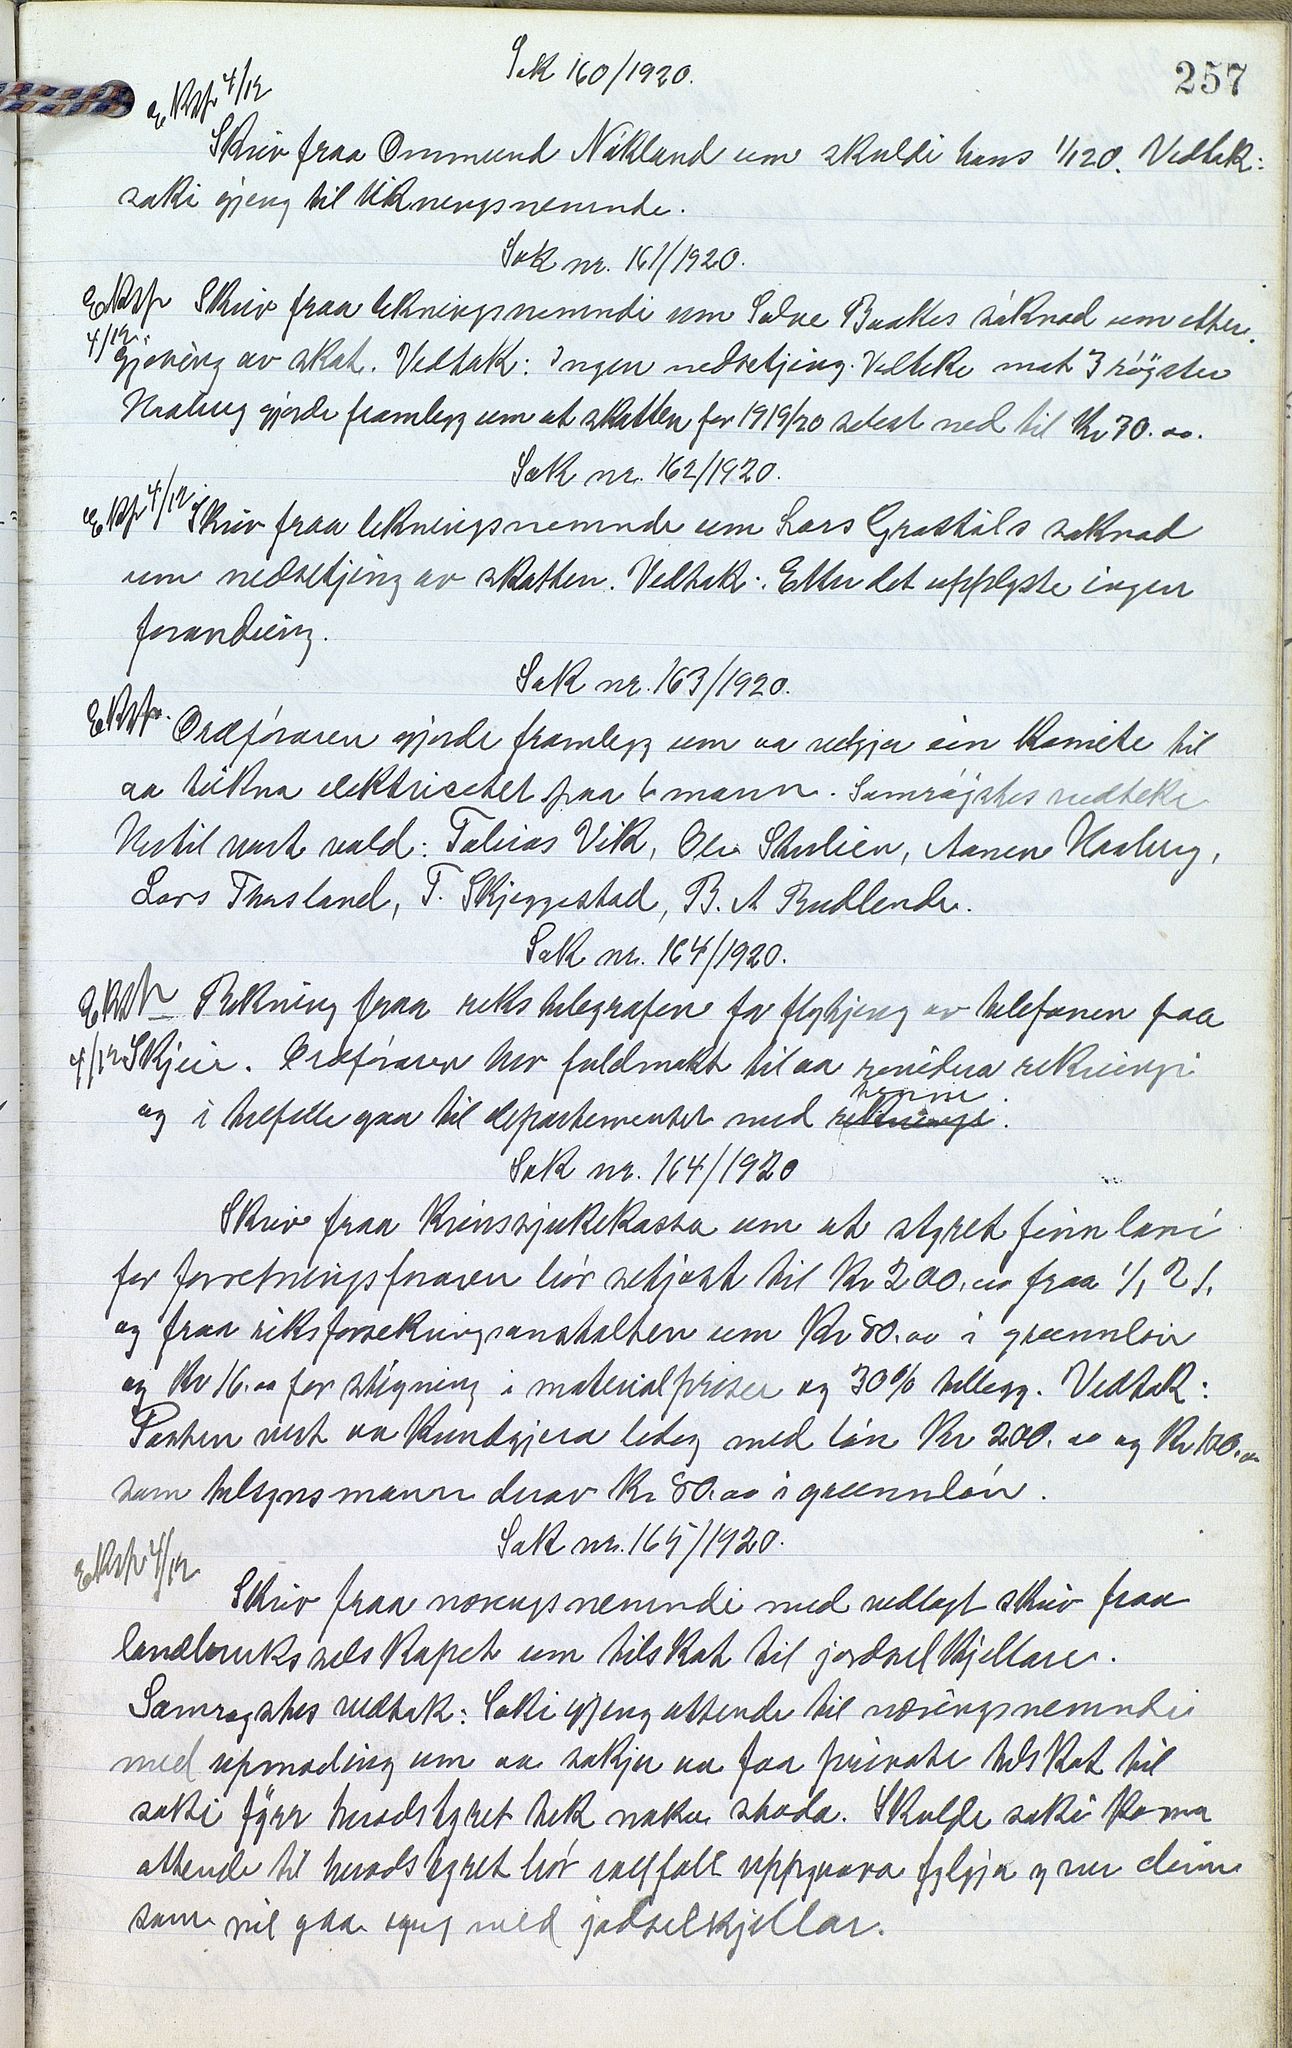 257
Sak 160/1920.
Eksp 4/12
Skriv fraa Ommund Näkland um skuldi hans 1/1 20. Vedtak:
saki gjeng til likningsnemndi.
Sak nr. 161/1920.
Eksp 4/12. Skriv fraa likningsnemndi um Salve Buakes säknad um etter-
gjeving av skat. Vedtak: Ingen nedsetjing. Vedteke mot 3 röyster
Haabug gjorde framlegg um at skatten for 1919/20 setest ned til Kr 30.00.
Sak nr. 162/1920.
Eksp 4/12 Skriv fraa likningsnemndi um Lars Grostöls saknad
um nedsetjing av skatten. Vedtak: Etter det upplyste ingen
forandring.
Sak nr. 163/1920.
Eksp. Ordföraren gjorde framlegg um aa velgja ein komite til
aa teikna elektricitet paa 6 mann. Samröystes vedteke
Hertil vart vald: Tobias Vik, Ole Stulien, Aanen Haabug,
Lars Thorsland, T. Skjeggestad, B. A. Rudlende.
Sak nr. 164/1920.
Eksp 4/12 Rekning fraa rikstelegrafen for flytjing av telefonen fraa
Skjeie. Ordföraren hev fuldmakt til aa revidera rekningi
og i tilfelle gaa til departementet med rekningi henne.
Sak nr. 164/1920
Skriv fraa Krinssjukekassa um at styret finn löni
for forretningsföraren bör setjast til Kr 200.00 fraa 1/1 21.
og fraa riksforsekringsanstalten um Kr 80.00 i grunnlön
og Kr 16.00 for stigning i materialpriser og 30% tillegg. Vedtak:
Posten vert aa kundgjera ledig med lön Kr 200.00 og Kr 100.00
som tilsynsmann derav Kr 80.00 i grunnlön.
Sak nr. 165/1920.
Eksp 4/12
Skriv fraa næringsnemndi med vedlagt skriv fraa
landbruksselskapet um tilskot til jordselkjellare.
Samröystes vedtak: Saki gjeng attende til næringsnemndi
med upmoding um aa søkja aa faa private tilskot til
saki fyrr heradstyret tek noko stoda. Skulde saki koma
attende til heradstyret bör iallfall uppgaava fylgja yver deim
som vil gaa igang med jodselkjellar.